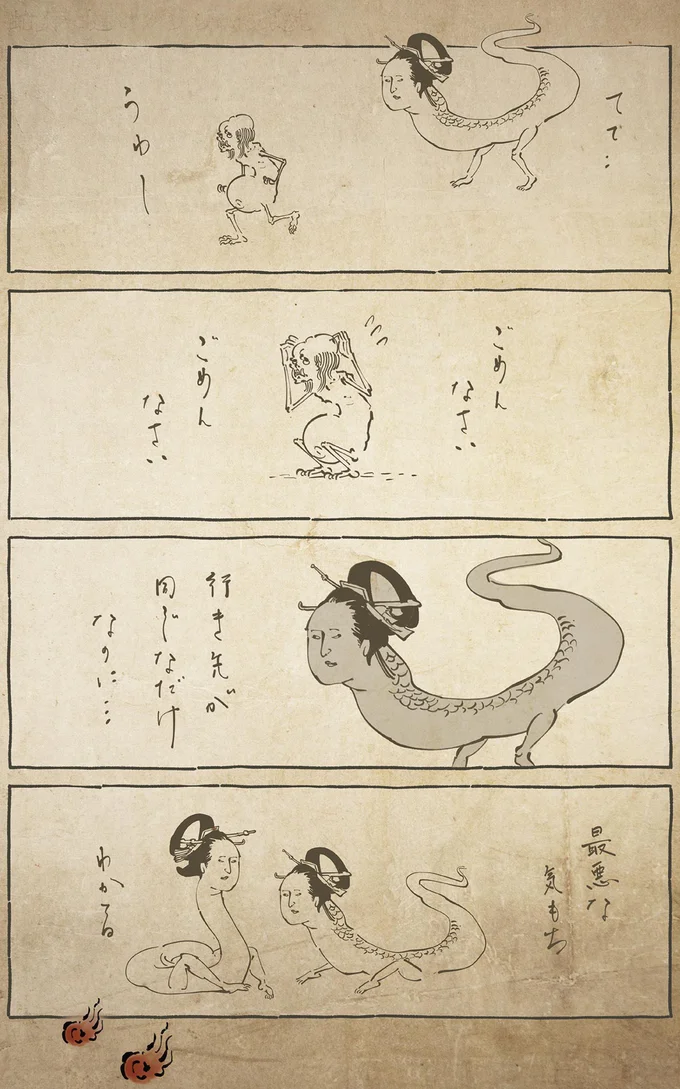 うわー
ごめん
なさい
ごめん
なさい
行き先が
同じなだけ
なのに…
最悪な
気もち
わかる